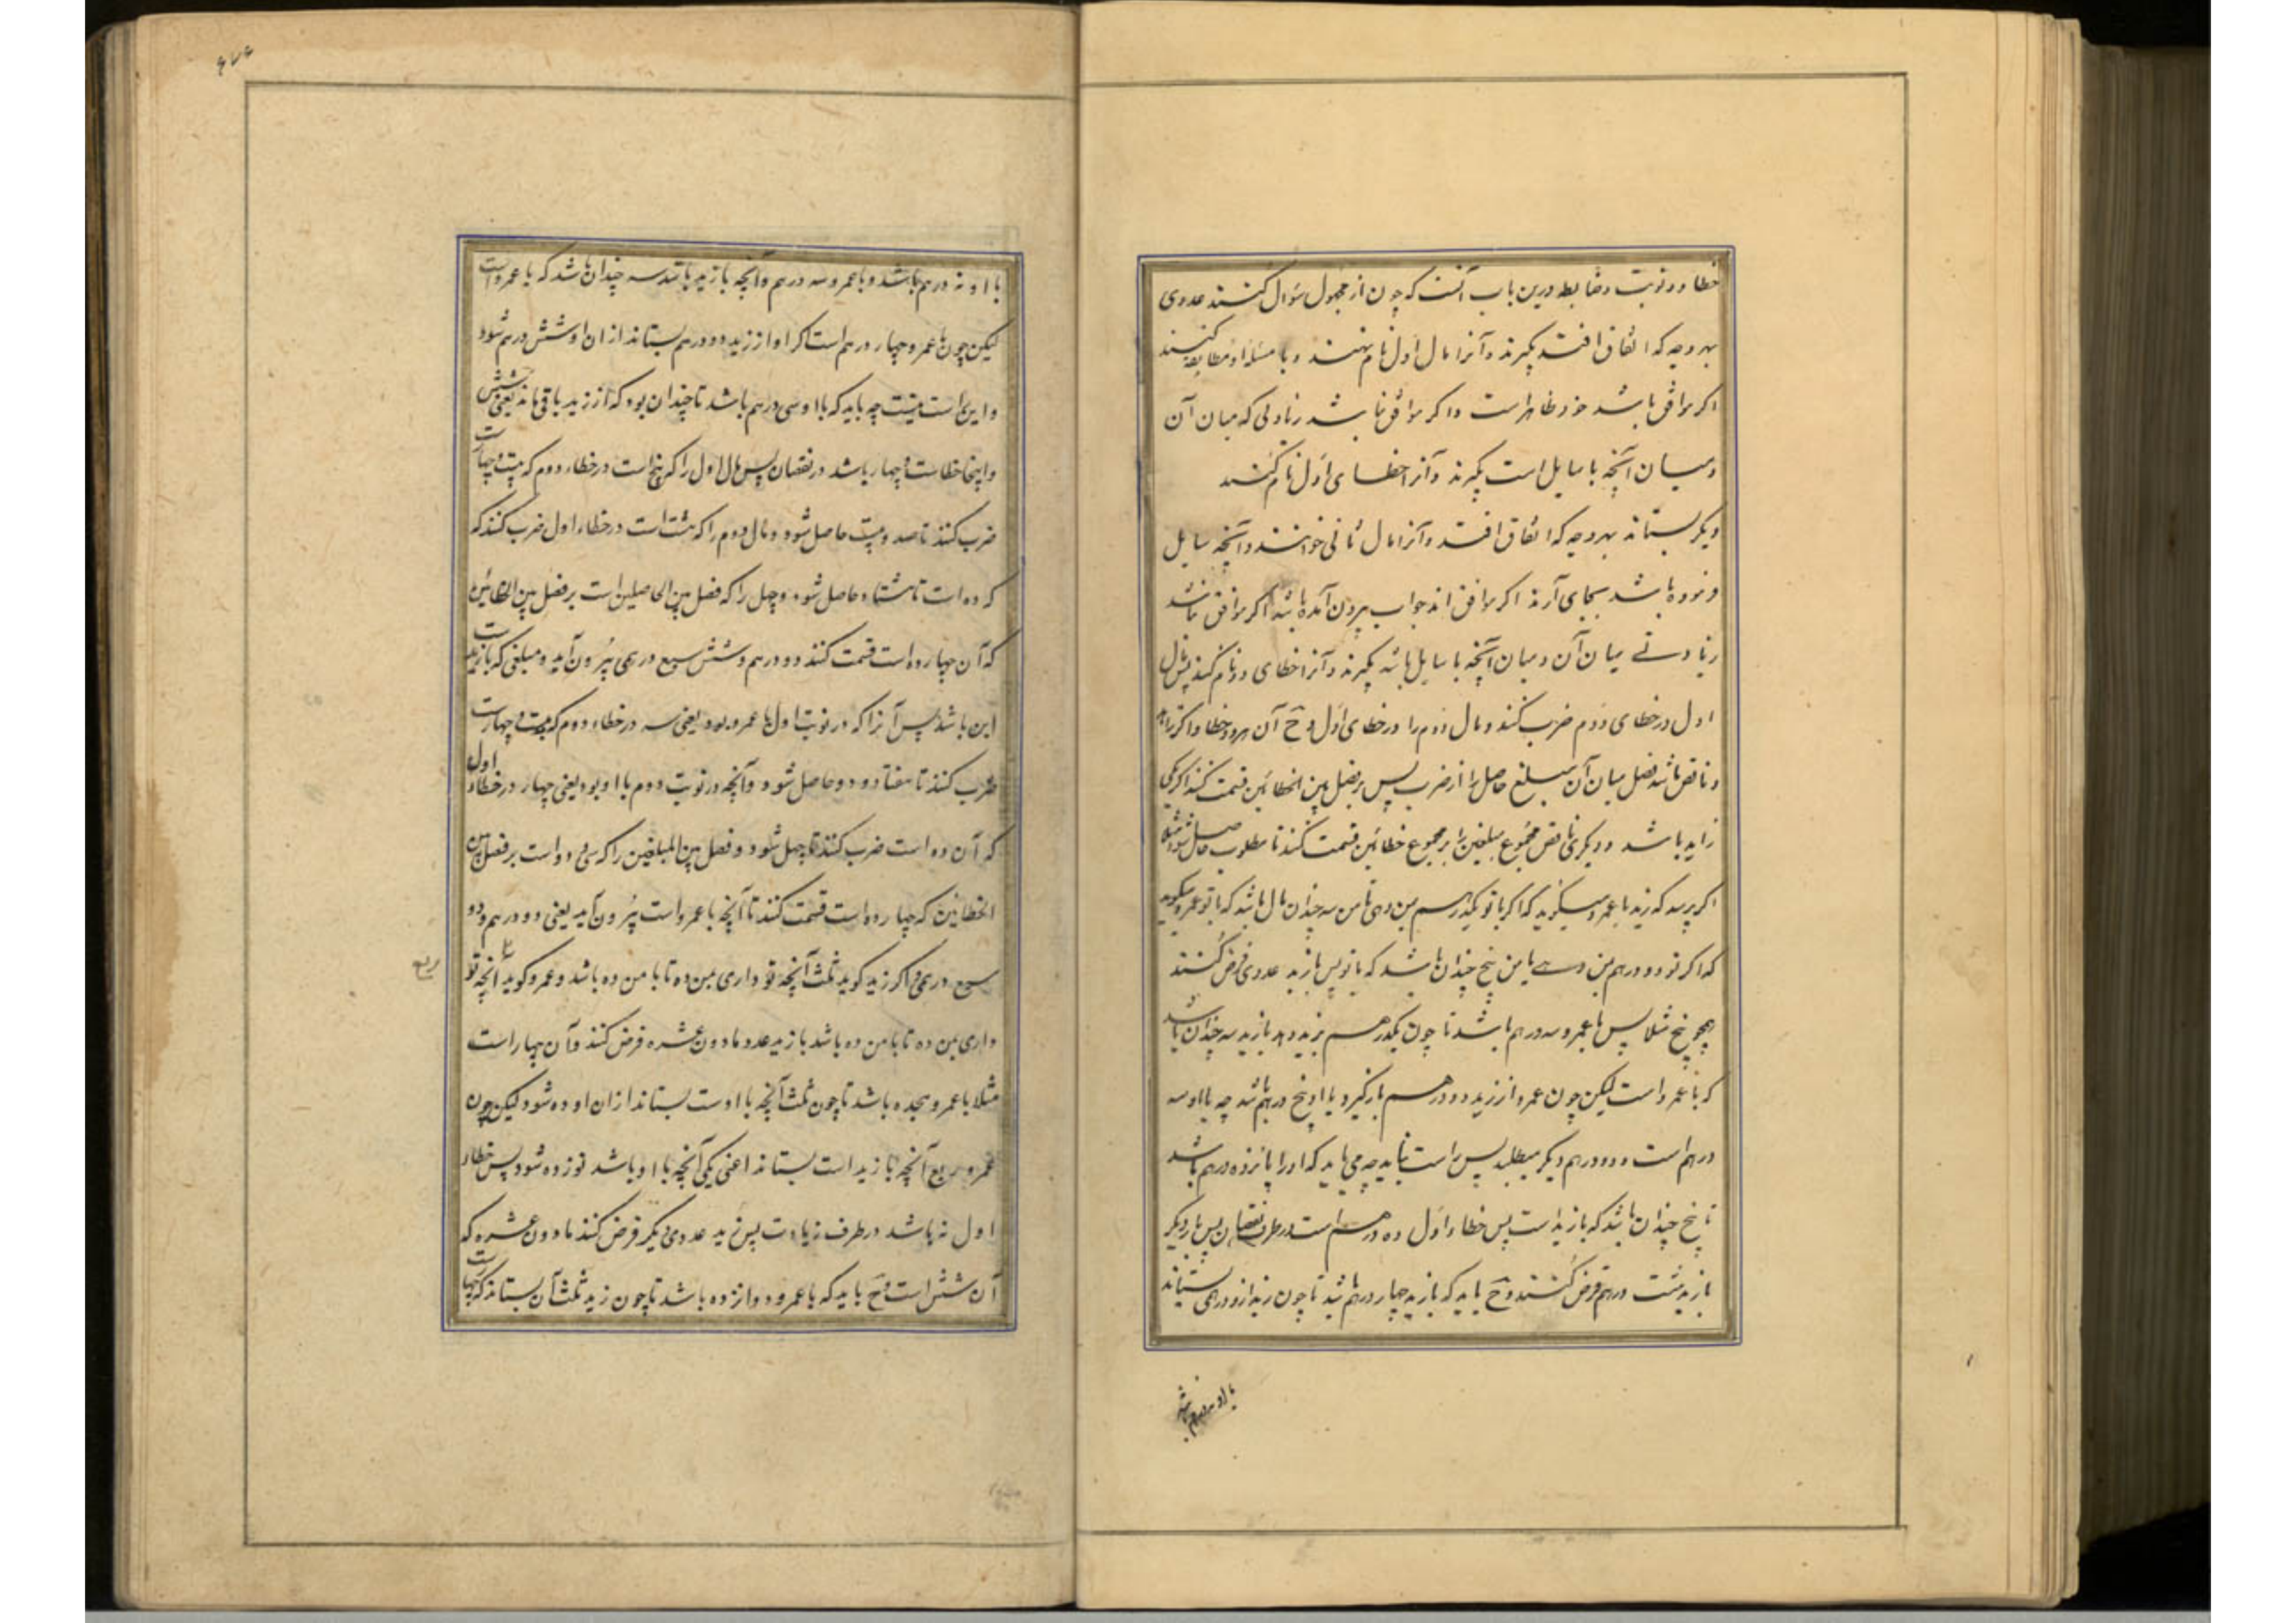 خطا دو نوبت و ضابطه درین باب آنست که چون از مجهول سؤال کنند عددی
بهر وجه که اتفاق افتد بگیرند و آنرا مال اول نام نهند و با مسئله او مطابقه کنند
اگر موافق باشد خود ظاهر است و اگر موافق نباشد زیادتی که میان آن
و میان آنچه با سایل است بگیرند و آنرا خطای اول نام کنند
دیگر بستانند بهر وجه که اتفاق افتد و آنرا مال ثانی خوانند و آنچه سایل
فرموده باشد بجای آرند اگر موافق اند جواب بیرون آمده باشد و اگر موافق نباشد
زیادتی میان آن و میان آنچه با سایل باشد بگیرند و آنرا خطای دوم نام کنند پس مال
اول در خطای دوم ضرب کنند و مال دوم را در خطای اول و ح آن هر دو خطا اگر زاید
و ناقص باشد فضل میان آن مبلغ حاصل را از ضرب پس بر فضل بین الخطائین قسمت کنند اگر یکی
زاید باشد و دیگری ناقص مجموع مبلغین را بر مجموع خطائین قسمت کنند تا مطلوب حاصل شود مثلا
اگر پرسد که زید با عمرو میگوید که اگر با تو یکدرهم بمن دهی با من سه چندان مال باشد که با تو عمرو میگوید
که اگر تو دو درهم بمن دهی با من پنج چندان باشد که با تو پس با زید عددی فرض کنند
همچو پنج مثلا پس با عمرو سه درهم باشد تا چون یکدرهم بزید دهد با زید سه چندان باشد
که با عمرو است لیکن چون عمرو از زید دو درهم بازگیرد با او پنج درهم باشد چه با او سه
درهم است و دو درهم دیگر میطلبد پس راست نیاید چه می باید که او را پانزده درهم باشد
تا پنج چندان باشد که با زید است پس خطاء اول ده درهم است در طرف نقصان پس بار دیگر
با زید هشت درهم فرض کنند و ح باید که با زید چهار درهم باشد تا چون زید ازو درهمی بستاند
با او نه درهم باشد
با او نه درهم باشد و با عمرو سه درهم و آنچه با زید باشد سه چندان باشد که با عمرو است
لیکن چون با عمرو چهار درهم است اگر او از زید دو درهم بستاند از ان او شش درهم شود
و این راست نیست چه باید که با او سی درهم باشد تا پنج چندان بود که از زید باقی ماند یعنی شش
و اینجا خطا بیست و چهار باشد در نقصان پس مال اول را که پنج است در خطاء دوم که بیست و چهار است
ضرب کنند تا صد و بیست حاصل شود و مال دوم را که هشت است در خطاء اول ضرب کنند که
که ده است تا هشتاد حاصل شود و چهل را که فضل بین الحاصلین است بر فضل بین الخطائین
که آن چهارده است قسمت کنند دو درهم و شش سبع درهمی بیرون آید و مبلغی که با زید است
این باشد پس آنرا که در نوبت اول با عمرو بود یعنی سه در خطاء دوم که بیست و چهار است
ضرب کنند تا هفتاد و دو حاصل شود و آنچه در نوبت دوم با او بود یعنی چهار در خطاء اول
که آن ده است ضرب کنند تا چهل شود و فضل بین المبلغین را که سی و دو است بر فضل بین
الخطائین که چهارده است قسمت کنند تا آنچه با عمرو است بیرون آید یعنی دو درهم و دو
سبع درهمی و اگر زید گوید ثلث آنچه تو داری بمن ده تا با من ده باشد و عمرو گوید آنچه تو
ربع
داری بمن ده تا با من ده باشد با زید عدد مادون عشره فرض کنند و آن چهار است
مثلا با عمرو هجده باشد تا چون ثلث آنچه با اوست بستاند از ان او ده شود لیکن چون
عمرو ربع آنچه با زید است بستاند اعنی یکی آنچه با او باشد نوزده شود پس خطاء
اول نه باشد در طرف زیادت پس بزید عددی دیگر فرض کنند مادون عشره که
آن شش است و ح باید که با عمرو دوازده باشد تا چون زید ثلث آن بستاند که چهار است